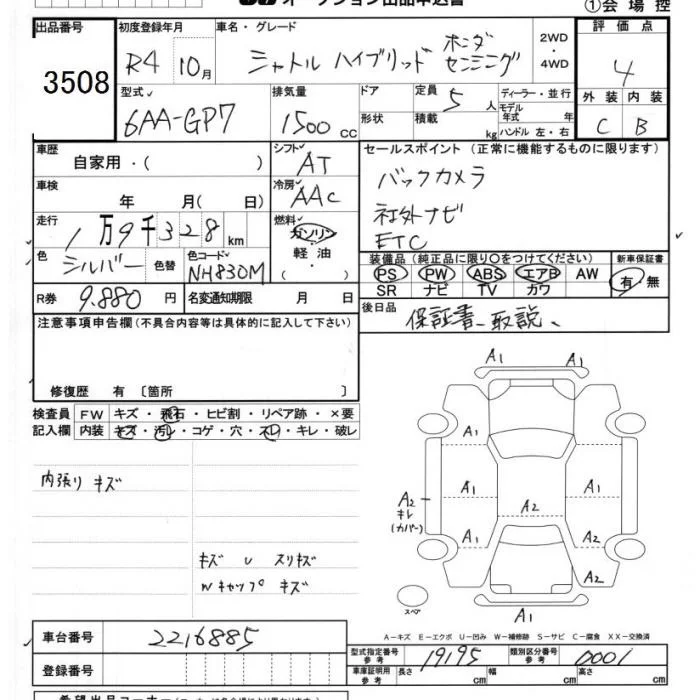 オークション出品申込書
①会場控
出品番号 初度登録年月 車名・グレード 評価点
3508 R4 10月 シャトル ハイブリッド ホンダセンシング 2WD・4WD 4
型式 排気量 ドア 定員 ディーラー・並行 外装 内装
6AA-GP7 1500cc 5人 モデル年式 年式
形状 積載 kg ハンドル 左・右 C B
車歴 シフト セールスポイント(正常に機能するものに限ります)
自家用・( ) AT
車検 冷房 バックカメラ
年 月(日) AAC 社外ナビ
走行 燃料 ETC
1万9千328km ガソリン
軽油・
色 色替 色コード 装備品(純正品に限り○をつけてください) 新車保証書
シルバー NH830M PS PW ABS エアB AW 有・無
SR ナビ TV カワ
R券 9.880円 名変通知期限 月 日
後日品 保証書、取説、
注意事項申告欄(不具合内容等は具体的に記入して下さい)
修復歴 有〔箇所 〕
検査員 FW キズ・飛石・ヒビ割・リペア跡・×要
記入欄 内装 キズ・汚レ・コゲ・穴・スレ・キレ・破レ
内張り キズ
キズ U スリキズ
Wキャップ キズ
A1
A1
A1 A1
A2 キレ(カバー)
A1 A2 A1
A1 A2
A2
スペア
A1
A-キズ E-エクボ U-凹み W-補修跡 S-サビ C-腐食 XX-交換済
車台番号 2216885
型式指定番号 参考 19195 類別区分番号 参考 0001
登録番号
車庫証明用 参考 長さ 幅 高さ
希望出品コーナー